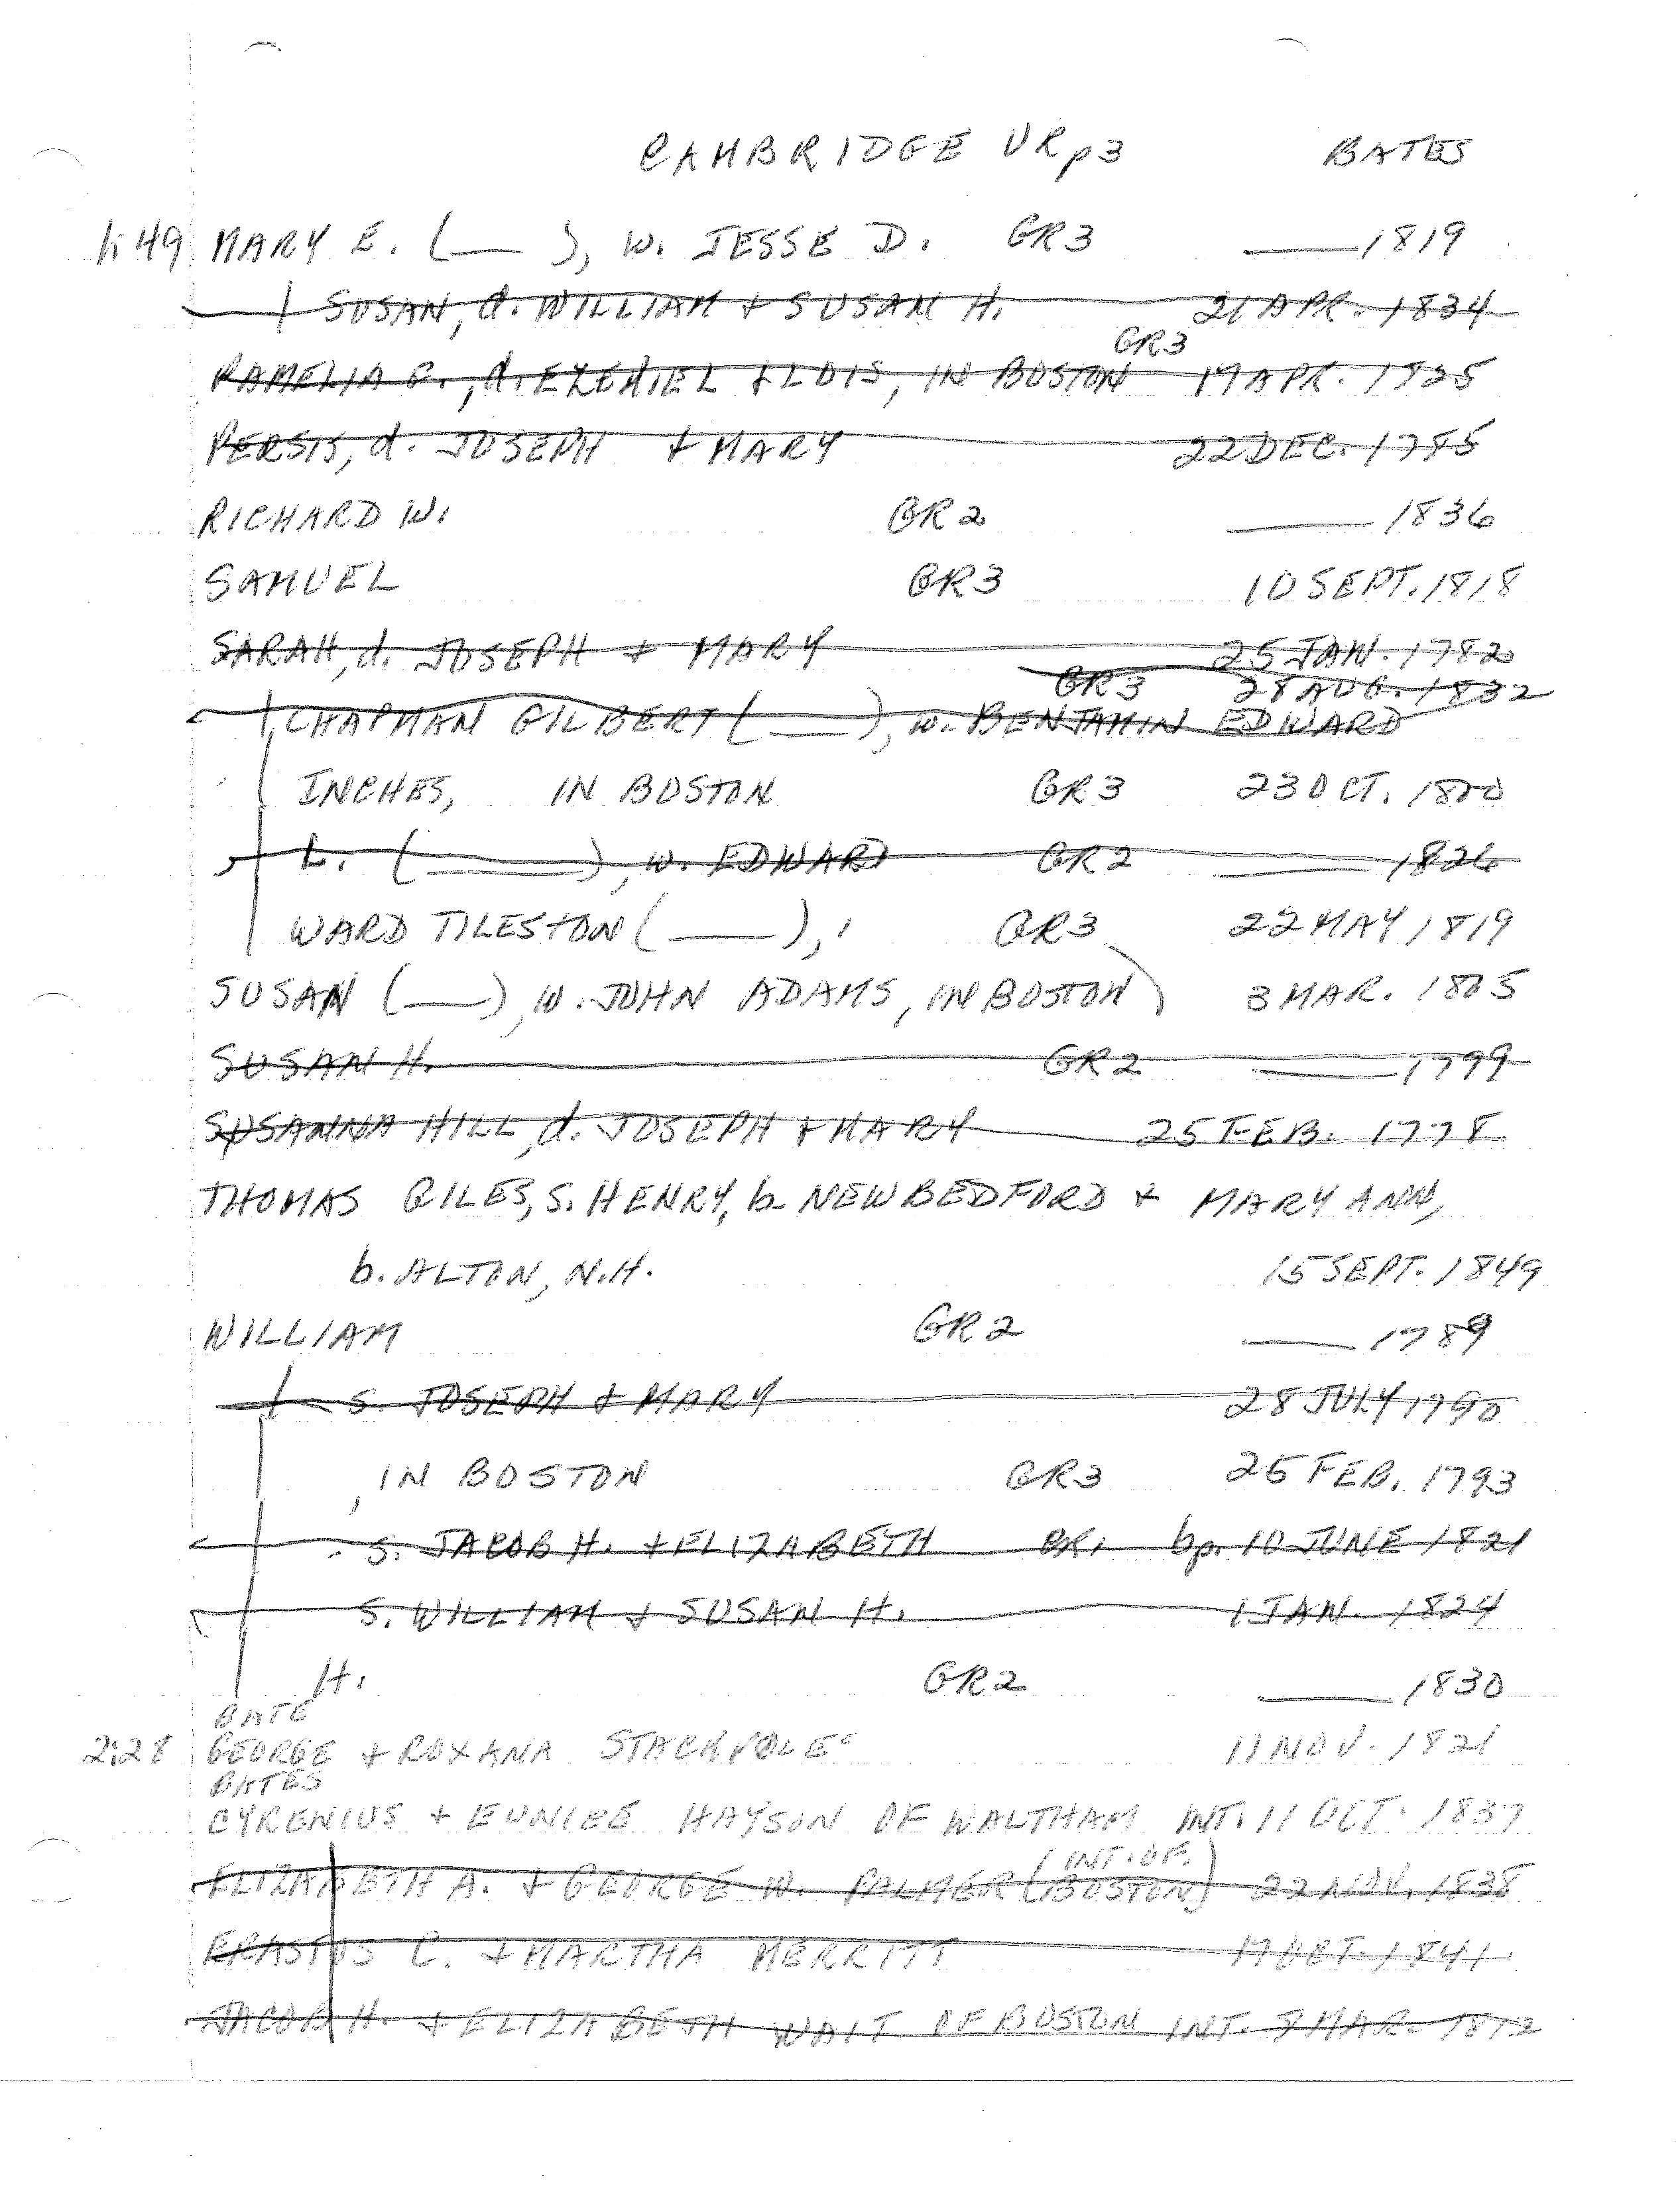 CAMBRIDGE VR p3 BATES
1:49 MARY E. (___), w. JESSE D. GR3 ___ 1819
SUSAN, d. WILLIAM + SUSAN H. 21 APR. 1834
GR3
PAMELIA C., d. EZEKIEL + LOIS, IN BOSTON 19 APR. 1825
PERSIS, d. JOSEPH + MARY 22 DEC. 1785
RICHARD W. GR2 ___ 1836
SAMUEL GR3 10 SEPT. 1818
SARAH, d. JOSEPH + MARY 25 JAN. 1782
GR3 28 AUG. 1832
CHAPMAN GILBERT (___), w. BENJAMIN EDWARD
INCHES, IN BOSTON GR3 23 OCT. 1800
L. (___), w. EDWARD GR2 ___ 1826
WARD TILESTON (___), GR3 22 MAY 1819
SUSAN (___), w. JOHN ADAMS, IN BOSTON) 3 MAR. 1805
SUSAN H. GR2 ___ 1799
SUSANNA HILL, d. JOSEPH + MARY 25 FEB. 1778
THOMAS GILES, s. HENRY, b. NEW BEDFORD + MARY ANN,
b. ALTON, N.H. 15 SEPT. 1849
WILLIAM GR2 ___ 1789
s. JOSEPH + MARY 28 JULY 1790
, IN BOSTON GR3 25 FEB. 1793
s. JACOB H. + ELIZABETH bp. 10 JUNE 1821
s. WILLIAM + SUSAN H. 1 JAN. 1824
H. GR2 ___ 1830
BATE
2:28 GEORGE + ROXANA STACKPOLE 11 NOV. 1821
BATES
CYRENIUS + EUNICE HAYSON OF WALTHAM INT. 11 OCT. 1837
ELIZABETH A. + GEORGE W. PALMER (INT. OF BOSTON) 22 NOV. 1838
ERASTUS C. + MARTHA MERRITT 17 OCT. 1841
JACOB H. + ELIZABETH WAIT OF BOSTON INT. 8 MAR. 1812